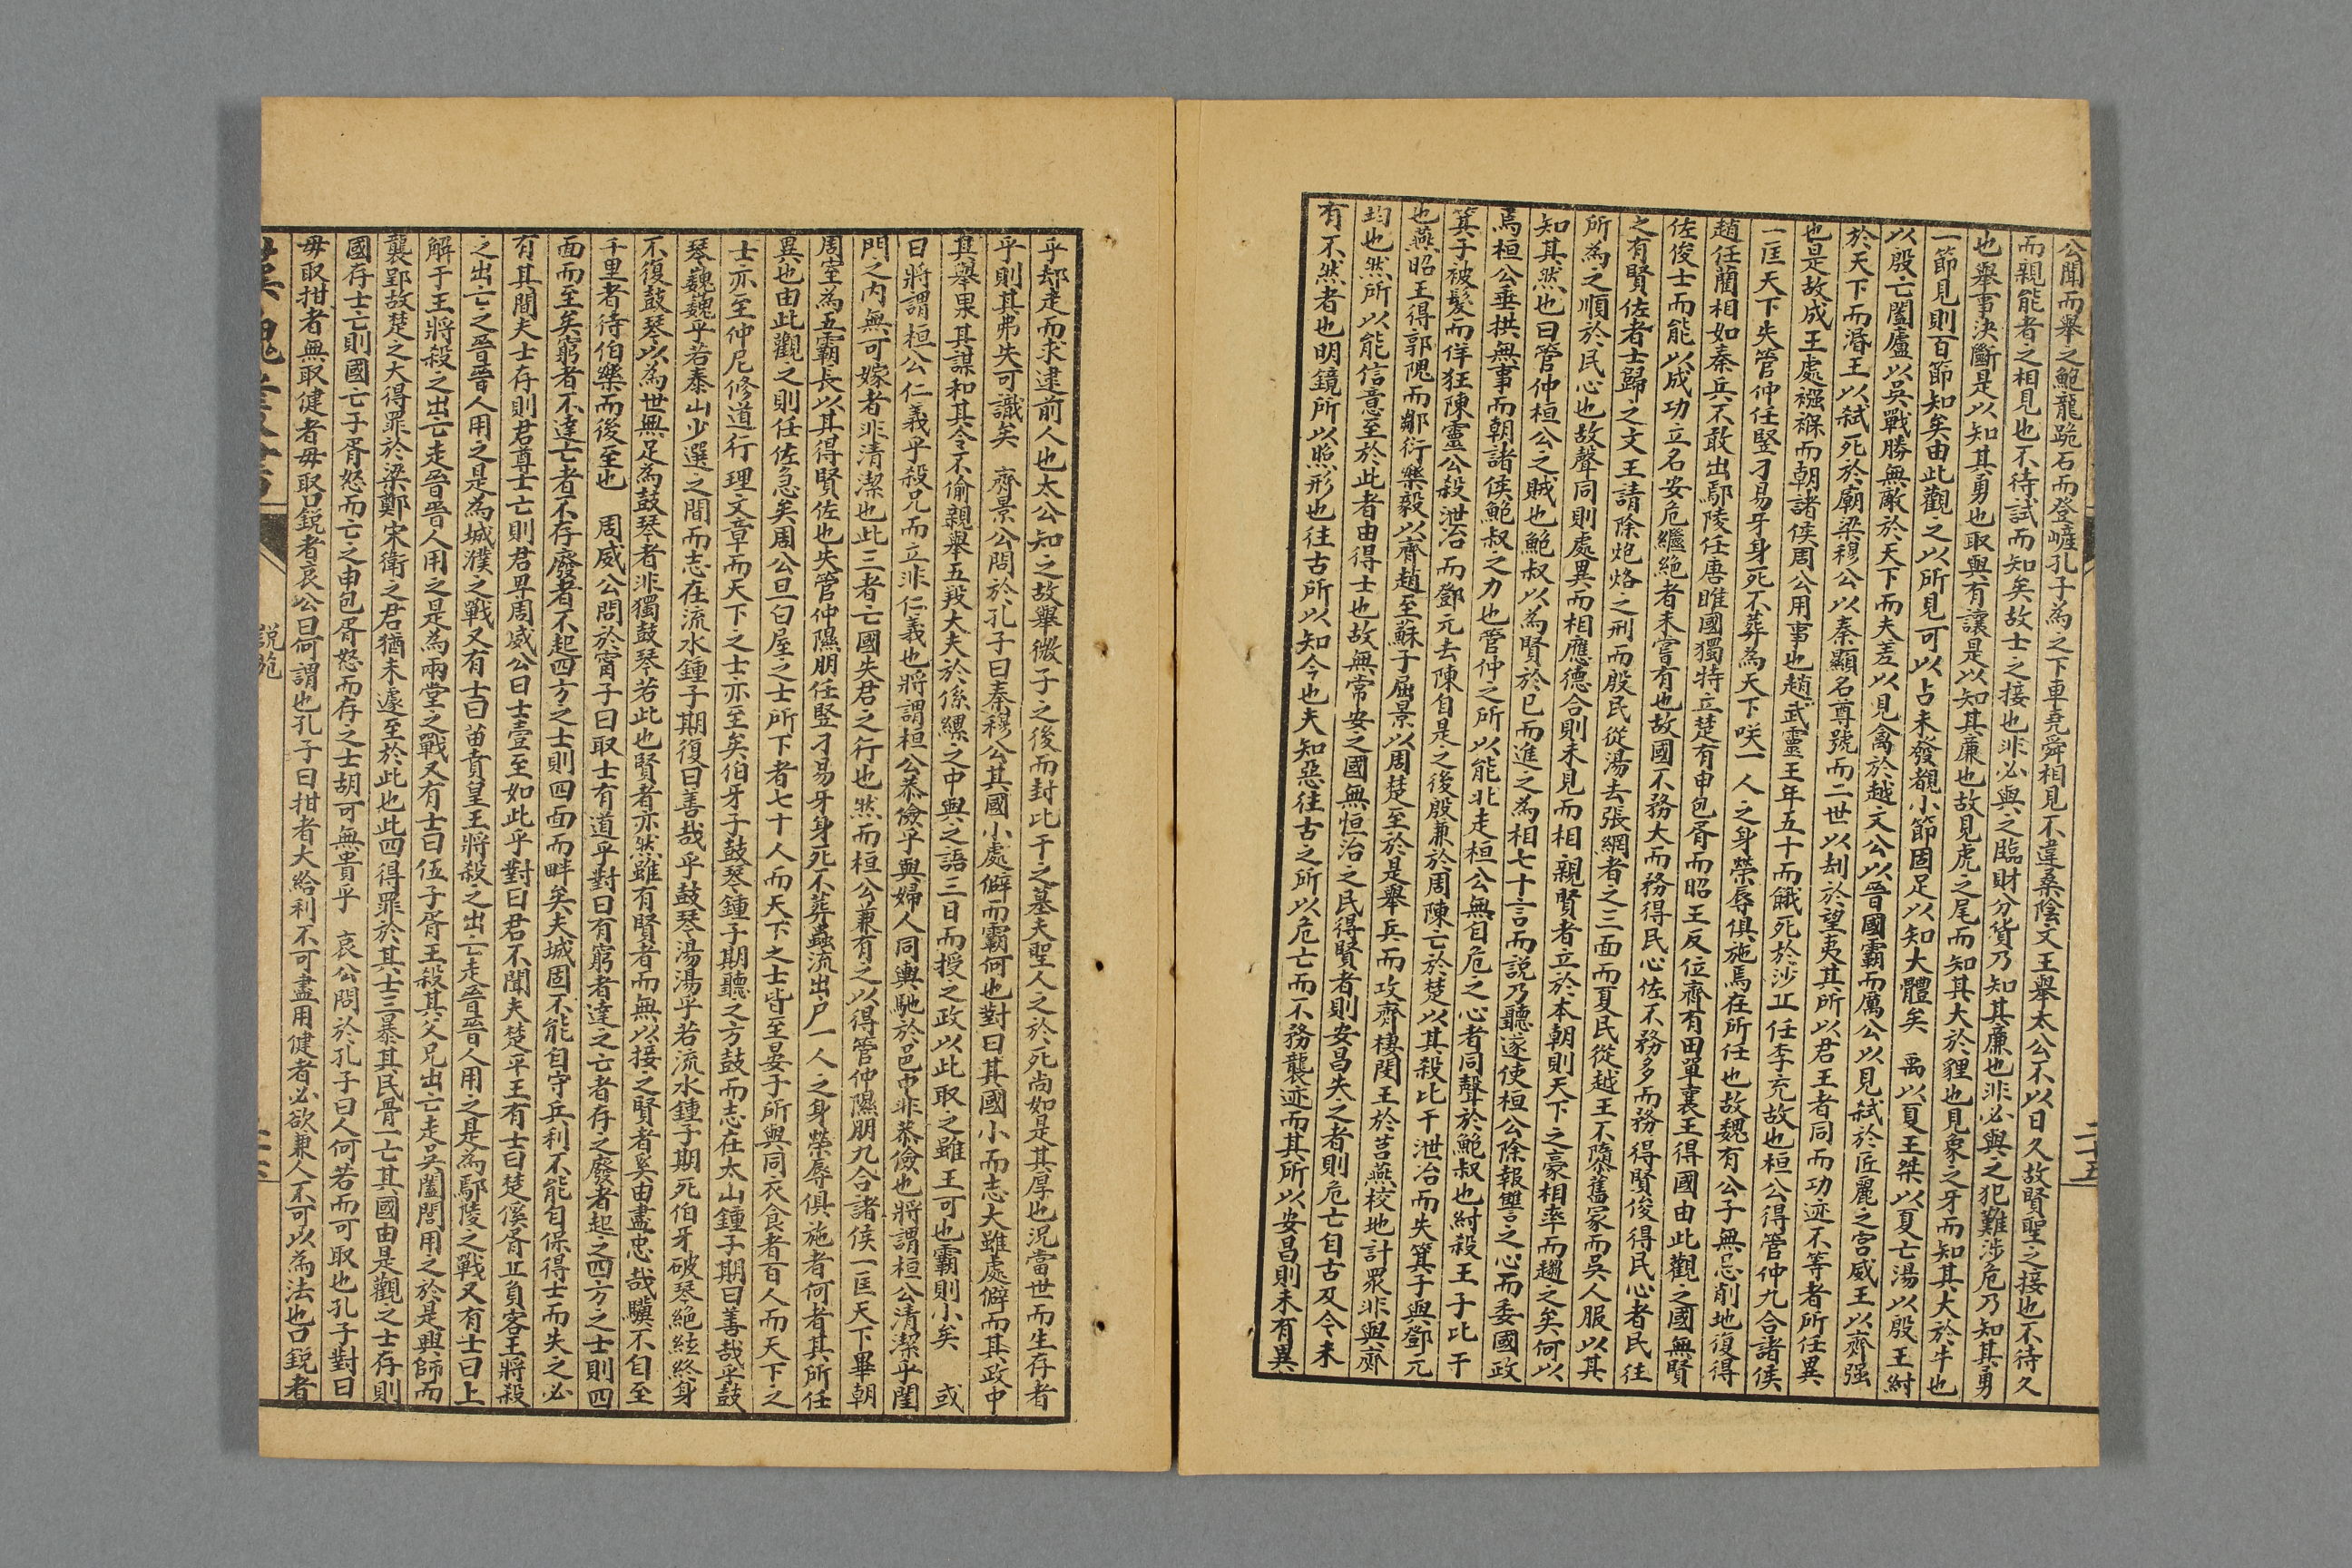 公聞而舉之鮑龍跪石而登嵼孔子為之下車堯舜相見不違桑陰文王舉太公不以日久故賢聖之接也不待久
而親能者之相見也不待試而知矣故士之接也非必與之臨財分貨乃知其廉也非必與之犯難涉危乃知其勇
也舉事決斷是以知其勇也取與有讓是以知其廉也故見虎之尾而知其大於貍也見象之牙而知其大於牛也
一節見則百節知矣由此觀之以所見可以占未發覩小節固足以知大體矣　禹以夏王桀以夏亡湯以殷王紂
以殷亡闔廬以吳戰勝無敵於天下而夫差以見禽於越文公以晉國霸而厲公以見弒於匠麗之宮威王以齊强
於天下而湣王以弒死於廟梁穆公以秦顯名尊號而二世以刦於望夷其所以君王者同而功迹不等者所任異
也是故成王處襁褓而朝諸侯周公用事也趙武靈王年五十而餓死於沙丘任李充故也桓公得管仲九合諸侯
一匡天下失管仲任竪刁易牙身死不葬為天下咲一人之身榮辱俱施焉在所任也故魏有公子無忌削地復得
趙任藺相如秦兵不敢出鄢陵任唐睢國獨特立楚有申包胥而昭王反位齊有田單襄王得國由此觀之國無賢
佐俊士而能以成功立名安危繼絶者未嘗有也故國不務大而務得民心佐不務多而務得賢俊得民心者民往
之有賢佐者士歸之文王請除炮烙之刑而殷民從湯去張網者之三面而夏民從越王不隳舊冢而吳人服以其
所為之順於民心也故聲同則處異而相應德合則未見而相親賢者立於本朝則天下之豪相率而趨之矣何以
知其然也曰管仲桓公之賊也鮑叔以為賢於已而進之為相七十言而說乃聽遂使桓公除報讐之心而委國政
焉桓公垂拱無事而朝諸侯鮑叔之力也管仲之所以能北走桓公無自危之心者同聲於鮑叔也紂殺王子比干
箕子被髮而佯狂陳靈公殺泄冶而鄧元去陳自是之後殷兼於周陳亡於楚以其殺比干泄冶而失箕子與鄧元
也燕昭王得郭隗而鄒衍樂毅以齊趙至蘇子屈景以周楚至於是舉兵而攻齊棲閔王於莒燕校地計眾非與齊
均也然所以能信意至於此者由得士也故無常安之國無恒治之民得賢者則安昌失之者則危亡自古及今未
有不然者也明鏡所以照形也往古所以知今也夫知惡往古之所以危亡而不務襲迹而其所以安昌則未有異
二十五
乎却走而求逮前人也太公知之故舉微子之後而封比干之墓夫聖人之於死尚如是其厚也況當世而生存者
乎則其弗失可識矣　齊景公問於孔子曰秦穆公其國小處僻而霸何也對曰其國小而志大雖處僻而其政中
其舉果其謀和其令不偷親舉五羖大夫於係縲之中與之語三日而授之政以此取之雖王可也霸則小矣　或
曰將謂桓公仁義乎殺兄而立非仁義也將謂桓公恭儉乎與婦人同輿馳於邑中非恭儉也將謂桓公清潔乎閨
門之內無可嫁者非清潔也此三者亡國失君之行也然而桓公兼有之以得管仲隰朋九合諸侯一匡天下畢朝
周室為五霸長以其得賢佐也失管仲隰朋任竪刁易牙身死不葬蟲流出戶一人之身榮辱俱施者何者其所任
異也由此觀之則任佐急矣周公旦白屋之士所下者七十人而天下之士皆至晏子所與同衣食者百人而天下之
士亦至仲尼修道行理文章而天下之士亦至矣伯牙子鼓琴鍾子期聽之方鼓而志在太山鍾子期曰善哉乎鼓
琴巍巍乎若泰山少選之間而志在流水鍾子期復曰善哉乎鼓琴湯湯乎若流水鍾子期死伯牙破琴絶絃終身
不復鼓琴以為世無足為鼓琴者非獨鼓琴若此也賢者亦然雖有賢者而無以接之賢者奚由盡忠哉驥不自至
千里者待伯樂而後至也　周威公問於甯子曰取士有道乎對曰有窮者達之亡者存之廢者起之四方之士則四
面而至矣窮者不達亡者不存廢者不起四方之士則四面而畔矣夫城固不能自守兵利不能自保得士而失之必
有其間夫士存則君尊士亡則君卑周威公曰士壹至如此乎對曰君不聞夫楚平王有士曰楚傒胥丘負客王將殺
之出亡之晉晉人用之是為城濮之戰又有士曰苗賁皇王將殺之出亡走晉晉人用之是為鄢陵之戰又有士曰上
解于王將殺之出亡走晉晉人用之是為兩堂之戰又有士曰伍子胥王殺其父兄出亡走吳闔閭用之於是興師而
襲郢故楚之大得罪於梁鄭宋衛之君猶未遽至於此也此四得罪於其士三暴其民骨一亡其國由是觀之士存則
國存士亡則國亡子胥怒而亡之申包胥怒而存之士胡可無貴乎　哀公問於孔子曰人何若而可取也孔子對曰
毋取拑者無取健者毋取口銳者哀公曰何謂也孔子曰拑者大給利不可盡用健者必欲兼人不可以為法也口銳者
說苑